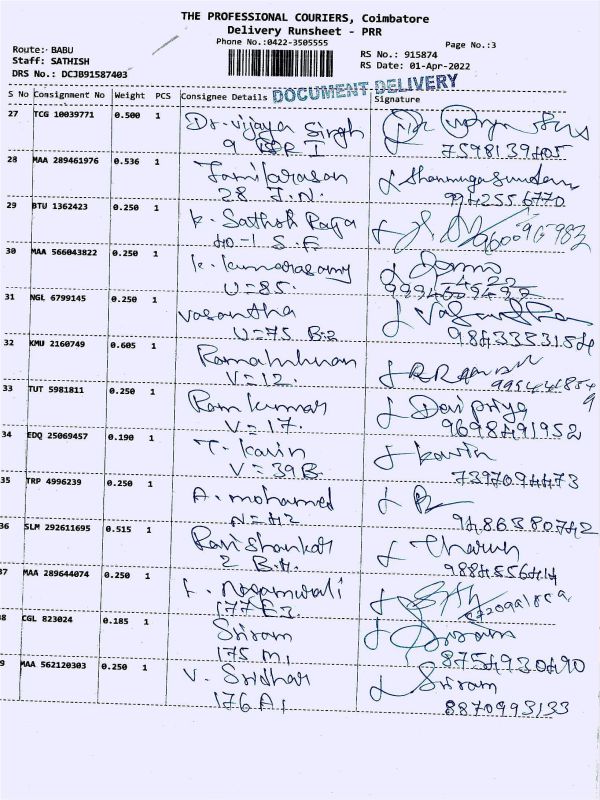 THE PROFESSIONAL COURIERS, Coimbatore
Delivery Runsheet - PRR
Phone No.:0422-3505555
Page No.:3
Route:- BABU
Staff: SATHISH
DRS No.: DCJB91587403
RS No.: 915874
RS Date: 01-Apr-2022
DOCUMENT DELIVERY
S No Consignment No Weight PCS Consignee Details Signature
27 TCG 10039771 0.500 1 Dr. Vijaya Singh
7598139405
28 MAA 289461976 0.536 1 Tamilarasan Shanmugasundam
28 J.N. 9942556770
29 BTU 1362423 0.250 1 K. Sathish Raja
40-1 S.F
30 MAA 566043822 0.250 1 K. Kumarasamy
U=85.
31 NGL 6799145 0.250 1 Vasantha Vasantha
U=75 B2 9843333154
32 KMU 2160749 0.605 1
V=12.
33 TUT 5981811 0.250 1 Ram Kumar Devi priya
V=17. 9698491952
34 EDQ 25069457 0.190 1 T. Kavin Kavin
V=39B. 7397094473
35 TRP 4996239 0.250 1 A. mohamed
N=42 9486380742
36 SLM 292611695 0.515 1 Ravi Shankar Tharun
2 B.H.
37 MAA 289644074 0.250 1
177 E3.
38 CGL 823024 0.185 1 Sriram Sriram
175 M, 8754930490
39 MAA 562120303 0.250 1 V. Sridhar Sriram
176 A, 8870993133